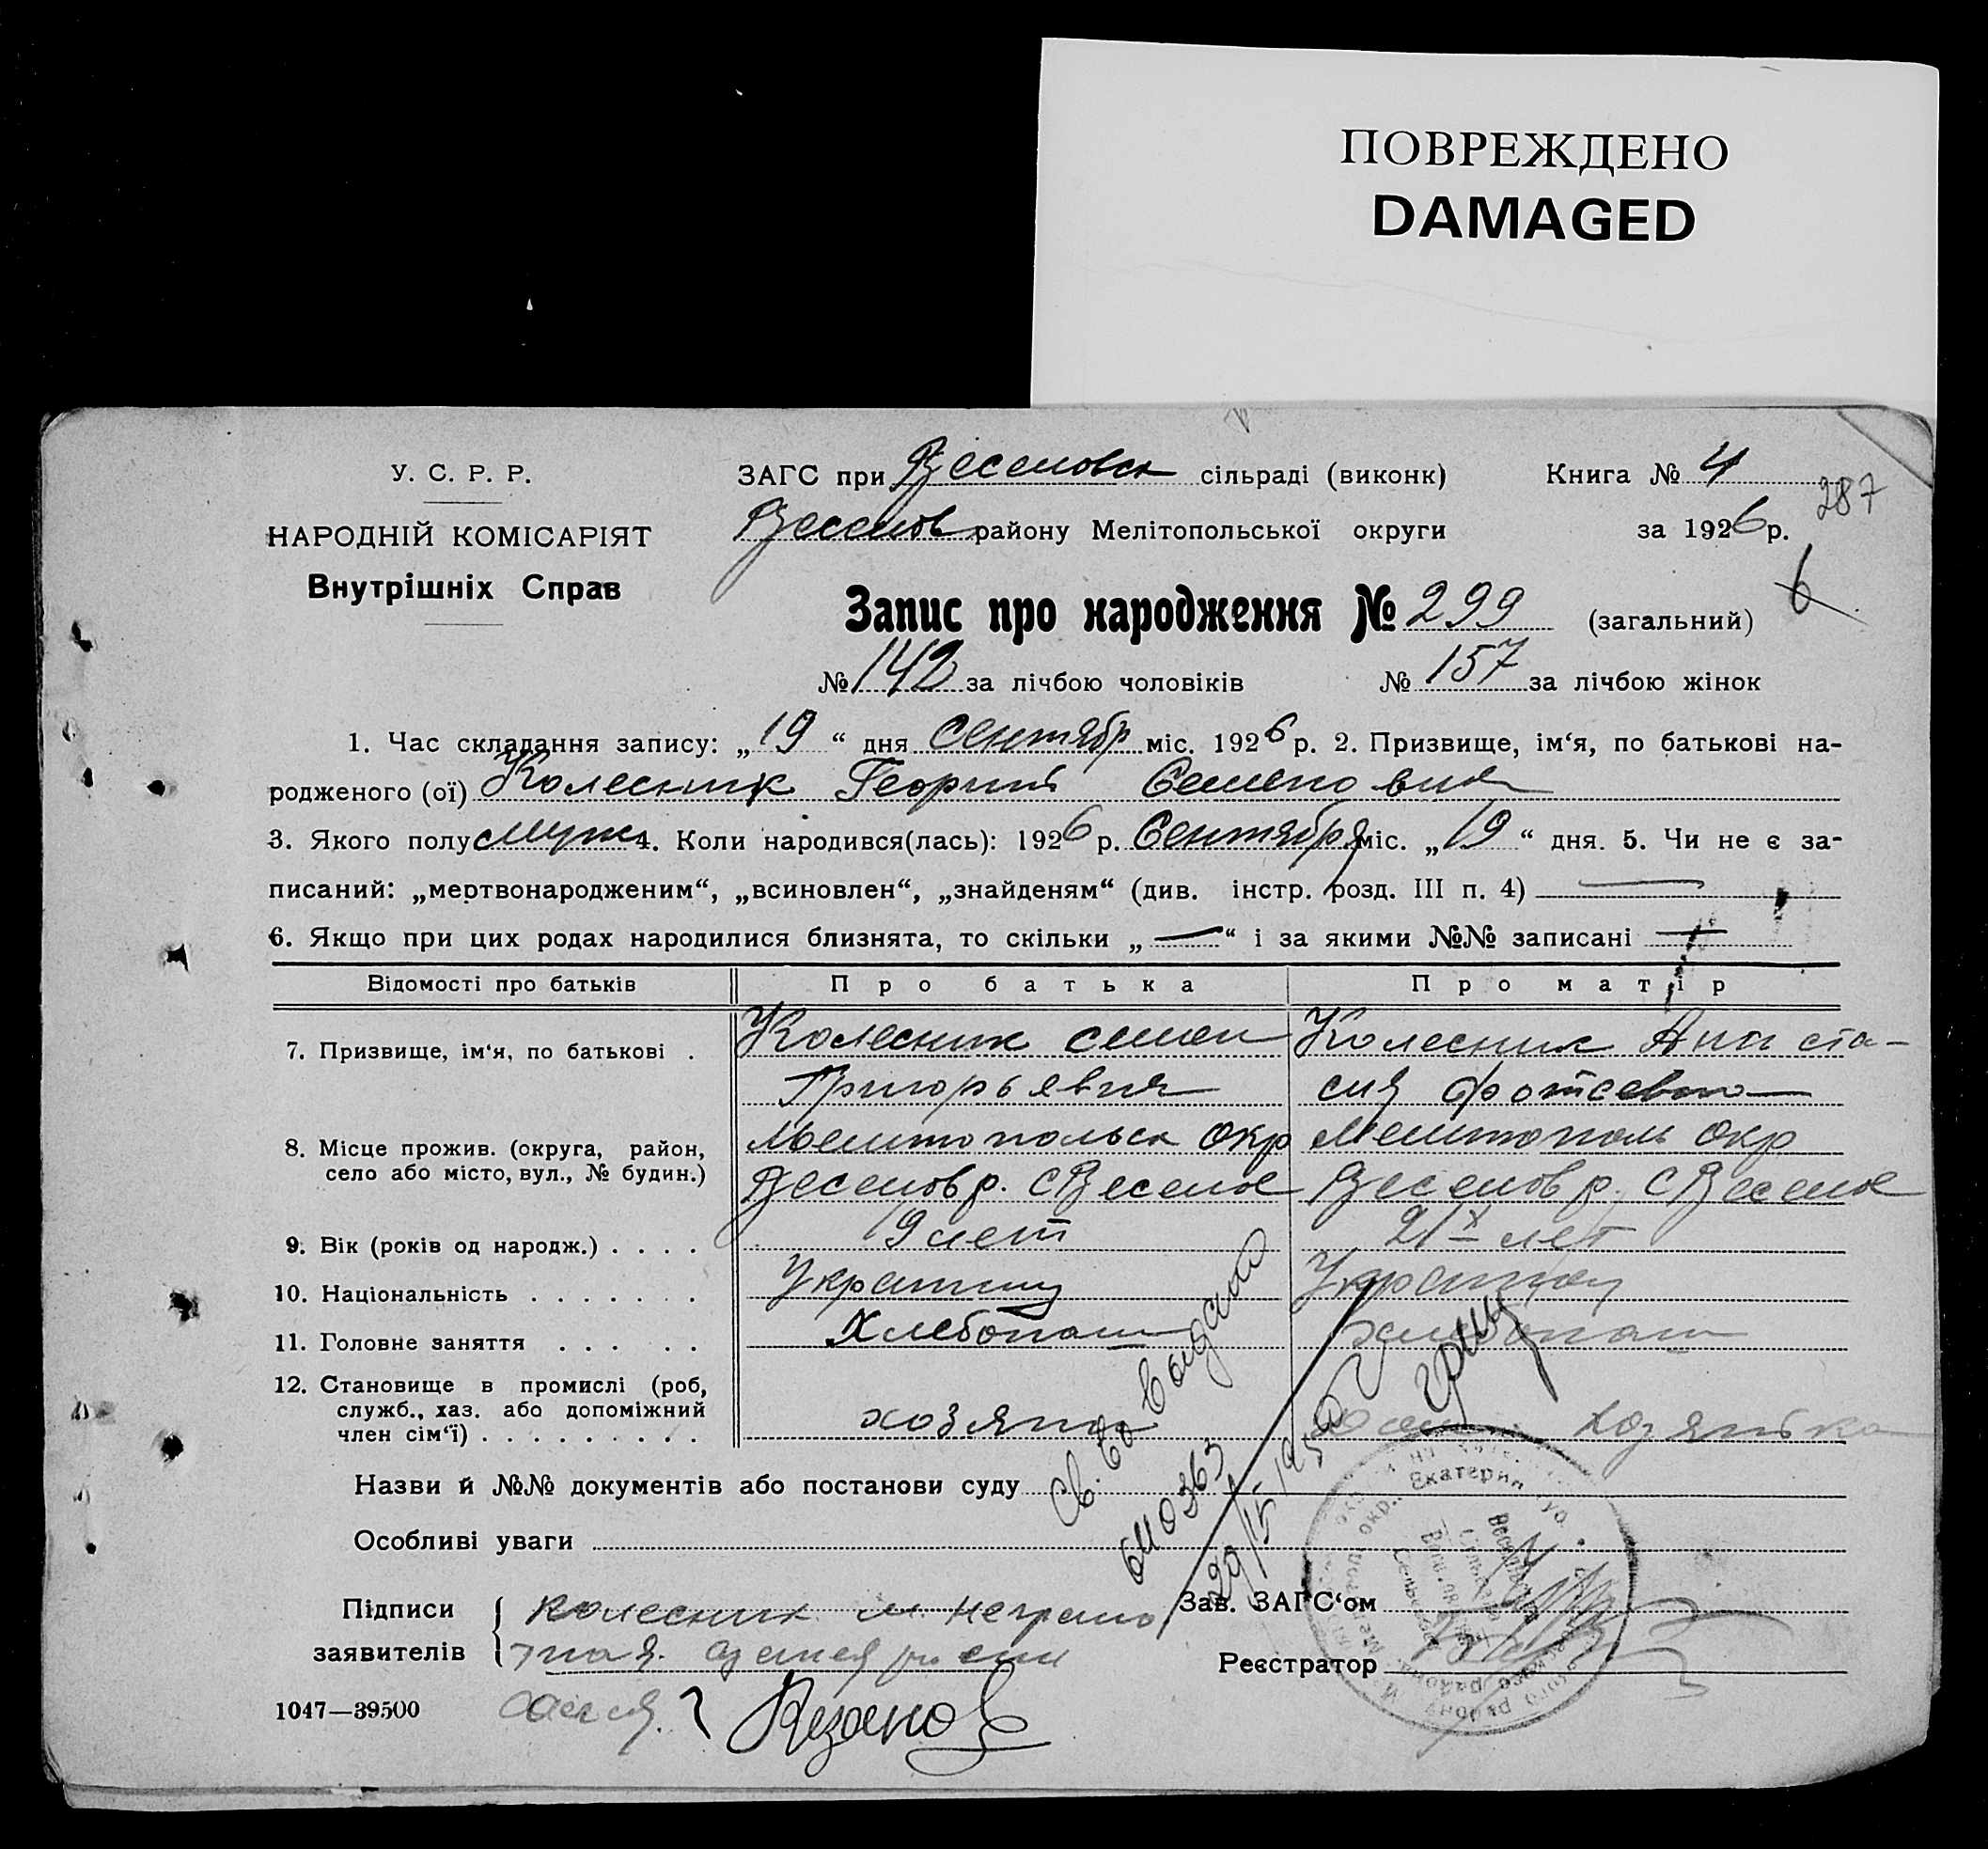 ПОВРЕЖДЕНО
DAMAGED
У. С. Р. Р.
НАРОДНІЙ КОМІСАРІЯТ
Внутрішніх Справ
ЗАГС при Веселовск сільраді (виконк) Книга № 4
287
Веселов району Мелітопольської округи за 1926 р.
6
Запис про народження № 299 (загальний)
№ 142 за лічбою чоловіків № 157 за лічбою жінок
1. Час складання запису: „19“ дня Сентябр міс. 1926 р. 2. Призвище, ім‘я, по батькові на-
родженого (ої) Колесник Георгий Семенович
3. Якого полу муж 4. Коли народився(лась): 1926 р. Сентября міс. „19“ дня. 5. Чи не є за-
писаний: „мертвонародженим“, „всиновлен“, „знайденям“ (див. інстр. розд. III п. 4) —
6. Якщо при цих родах народилися близнята, то скільки „—“ і за якими №№ записані —
Відомості про батьків Про батька Про матір
7. Призвище, ім‘я, по батькові . Колесник Семен Колесник Анаста-
Григорьевич сия
8. Місце прожив. (округа, район, Мелитопольск окр Мелитополь окр
село або місто, вул., № будин.) Веселов р. с Веселое Веселов р. с Веселое
9. Вік (років од народж.) . . . . 19 лет 21х лет
10. Національність . . . . . . . Украинец Украинка
11. Головне заняття . . . . . Хлебопаш хлебопаш
12. Становище в промислі (роб,
служб., хаз. або допоміжний
член сім‘ї) . . . . . . . . . хозяин хозяйка
Св. во выдано
Назви й №№ документів або постанови суду
Особливі уваги
Підписи
заявителів
Колесник н неграмо
тная.
Зав. ЗАГС‘ом
Реєстратор
1047—39500